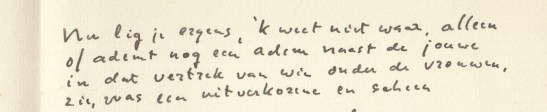 Nu lig je ergens, 'k weet niet waar, alleen
of ademt nog een adem naast de jouwe
in dat vertrek van wie onder de vrouwen,
zie, was een uitverkorene en scheen